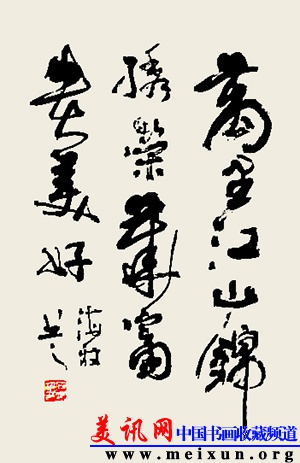 萬里江山錦
繡榮華富
貴美好
美讯网 中国书画收藏频道
www.meixun.org